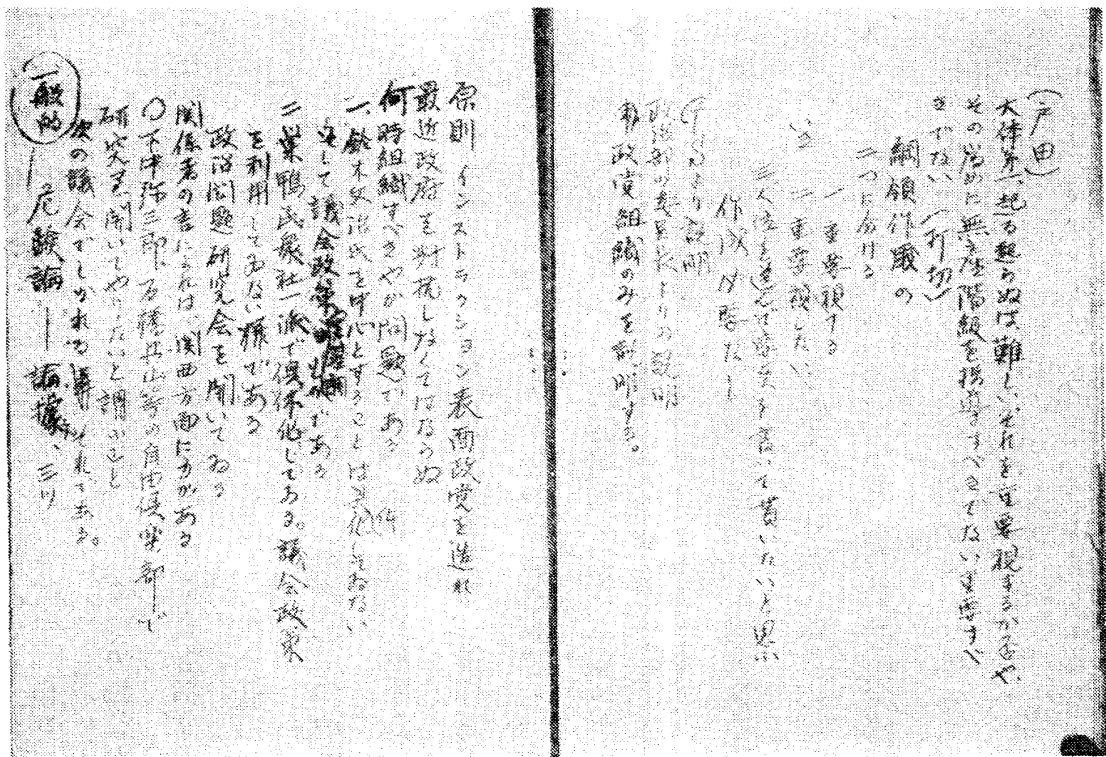 (戸田)
大体年一起る起らぬは難しい、それを重要視するか否や、
その為めに無産階級を指導すべきでない重要すべ
きでない(打切)
綱領作成の
二つに分ける
一 重要視する
二 重要視しない
三人位を選んで案文を書いて貰いたいと思ふ
作成
より説明
政治部の委員長よりの説明
政党組織のみを説明する。
原則 インストラクション 表面政党を造れ
最近政府を対抗しなくてはならぬ
何時組織すべきやが問題である
一、鈴木文治氏を中心とすることは具体化してゐない
として議会政策
二、巣鴨民衆社一派で具体化してある。議会政策
を利用してゐない様である
政治問題研究会を開いてゐる
関係者の言によれば、関西方面に力がある
〇下中弥三郎、石橋 等の自由倶楽部で
研究 開いてやりたいと謂ふこと
次の議会でしかれる それである。
一般的 — 危険論 —